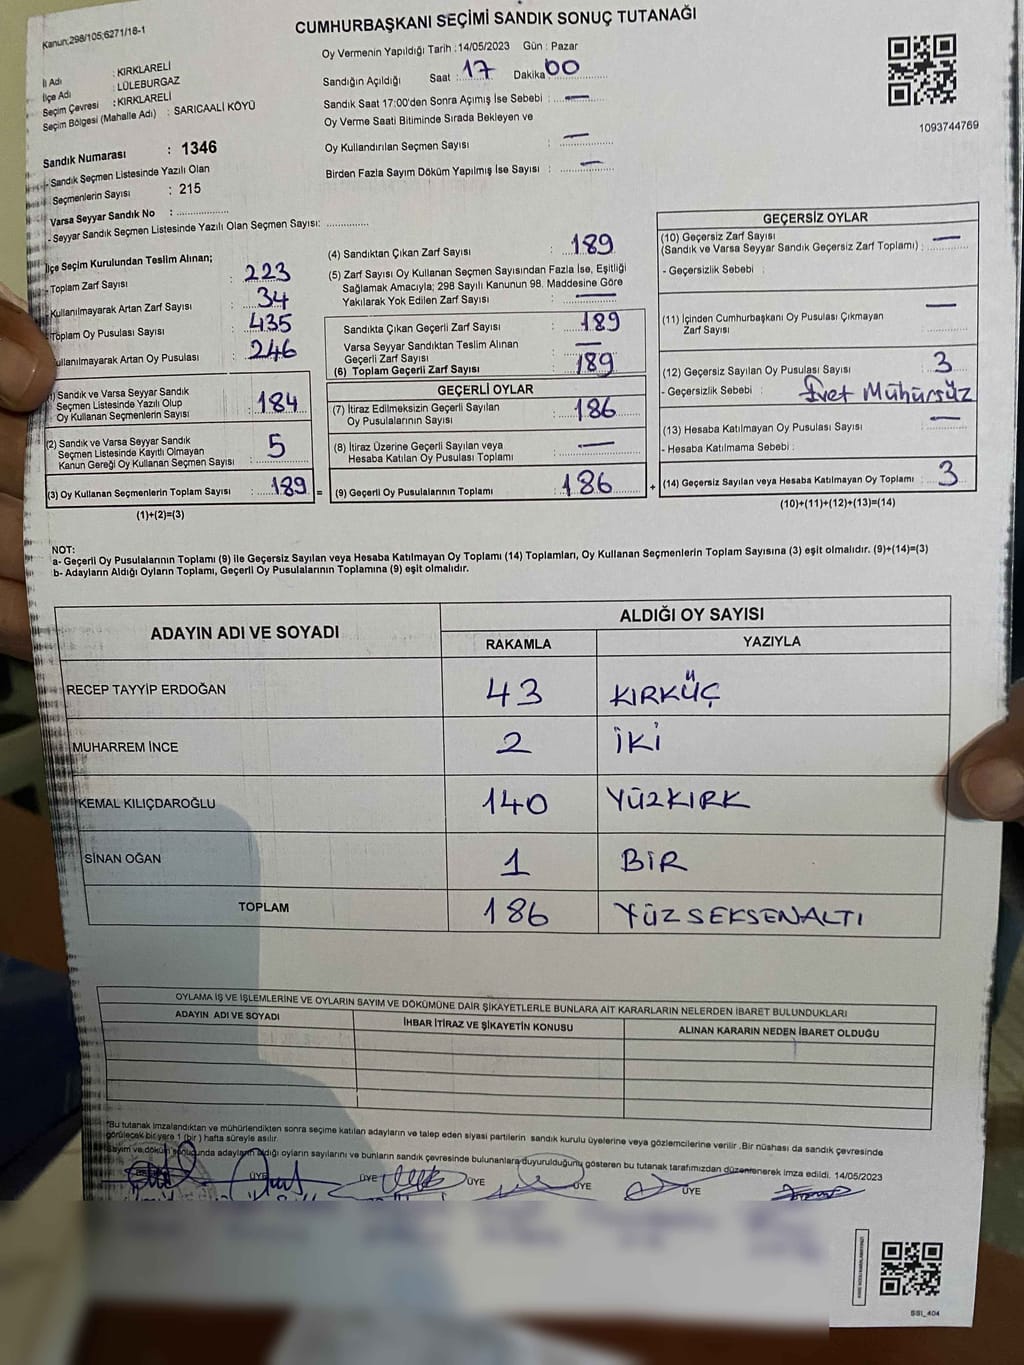 Kanun:298/105;6271/18-1
CUMHURBAŞKANI SEÇİMİ SANDIK SONUÇ TUTANAĞI
Oy Vermenin Yapıldığı Tarih :14/05/2023 Gün : Pazar
İl Adı : KIRKLARELİ
İlçe Adı : LÜLEBURGAZ
Seçim Çevresi : KIRKLARELİ
Seçim Bölgesi (Mahalle Adı) : SARICAALİ KÖYÜ
Sandığın Açıldığı Saat : 17 Dakika 00
Sandık Saat 17:00'den Sonra Açımış İse Sebebi : —
Oy Verme Saati Bitiminde Sırada Bekleyen ve
Oy Kullandırılan Seçmen Sayısı : —
Birden Fazla Sayım Döküm Yapılmış İse Sayısı : —
1093744769
Sandık Numarası : 1346
- Sandık Seçmen Listesinde Yazılı Olan
Seçmenlerin Sayısı : 215
Varsa Seyyar Sandık No : ....................
- Seyyar Sandık Seçmen Listesinde Yazılı Olan Seçmen Sayısı: ................
İlçe Seçim Kurulundan Teslim Alınan;
- Toplam Zarf Sayısı : 223
Kullanılmayarak Artan Zarf Sayısı : 34
Toplam Oy Pusulası Sayısı : 435
Kullanılmayarak Artan Oy Pusulası : 246
(1) Sandık ve Varsa Seyyar Sandık
Seçmen Listesinde Yazılı Olup
Oy Kullanan Seçmenlerin Sayısı : 184
(2) Sandık ve Varsa Seyyar Sandık
Seçmen Listesinde Kayıtlı Olmayan
Kanun Gereği Oy Kullanan Seçmen Sayısı : 5
(3) Oy Kullanan Seçmenlerin Toplam Sayısı : 189 =
(1)+(2)=(3)
(4) Sandıktan Çıkan Zarf Sayısı : 189
(5) Zarf Sayısı Oy Kullanan Seçmen Sayısından Fazla İse, Eşitliği
Sağlamak Amacıyla; 298 Sayılı Kanunun 98. Maddesine Göre
Yakılarak Yok Edilen Zarf Sayısı : —
Sandıkta Çıkan Geçerli Zarf Sayısı : 189
Varsa Seyyar Sandıktan Teslim Alınan
Geçerli Zarf Sayısı : —
(6) Toplam Geçerli Zarf Sayısı : 189
GEÇERLİ OYLAR
(7) İtiraz Edilmeksizin Geçerli Sayılan
Oy Pusulalarının Sayısı : 186
(8) İtiraz Üzerine Geçerli Sayılan veya
Hesaba Katılan Oy Pusulası Toplamı : —
(9) Geçerli Oy Pusulalarının Toplamı : 186 +
GEÇERSİZ OYLAR
(10) Geçersiz Zarf Sayısı
(Sandık ve Varsa Seyyar Sandık Geçersiz Zarf Toplamı) : —
- Geçersizlik Sebebi :
(11) İçinden Cumhurbaşkanı Oy Pusulası Çıkmayan
Zarf Sayısı : —
(12) Geçersiz Sayılan Oy Pusulası Sayısı : 3
- Geçersizlik Sebebi : Evet Mühürsüz
(13) Hesaba Katılmayan Oy Pusulası Sayısı : —
- Hesaba Katılmama Sebebi :
(14) Geçersiz Sayılan veya Hesaba Katılmayan Oy Toplamı : 3
(10)+(11)+(12)+(13)=(14)
NOT:
a- Geçerli Oy Pusulalarının Toplamı (9) ile Geçersiz Sayılan veya Hesaba Katılmayan Oy Toplamı (14) Toplamları, Oy Kullanan Seçmenlerin Toplam Sayısına (3) eşit olmalıdır. (9)+(14)=(3)
b- Adayların Aldığı Oyların Toplamı, Geçerli Oy Pusulalarının Toplamına (9) eşit olmalıdır.
ADAYIN ADI VE SOYADI
ALDIĞI OY SAYISI
RAKAMLA YAZIYLA
RECEP TAYYİP ERDOĞAN 43 KIRKÜÇ
MUHARREM İNCE 2 İKİ
KEMAL KILIÇDAROĞLU 140 YÜZKIRK
SİNAN OĞAN 1 BİR
TOPLAM 186 YÜZ SEKSENALTI
OYLAMA İŞ VE İŞLEMLERİNE VE OYLARIN SAYIM VE DÖKÜMÜNE DAİR ŞİKAYETLERLE BUNLARA AİT KARARLARIN NELERDEN İBARET BULUNDUKLARI
ADAYIN ADI VE SOYADI İHBAR İTİRAZ VE ŞİKAYETİN KONUSU ALINAN KARARIN NEDEN İBARET OLDUĞU
*Bu tutanak imzalandıktan ve mühürlendikten sonra seçime katılan adayların ve talep eden siyasi partilerin sandık kurulu üyelerine veya gözlemcilerine verilir .Bir nüshası da sandık çevresinde
görülecek bir yere 1 (bir ) hafta süreyle asılır.
Sayım ve döküm sonucunda adayların aldığı oyların sayılarını ve bunların sandık çevresinde bulunanlara duyurulduğunu gösteren bu tutanak tarafımızdan düzenlenerek imza edildi. 14/05/2023
ÜYE ÜYE ÜYE ÜYE ÜYE
SSI_404